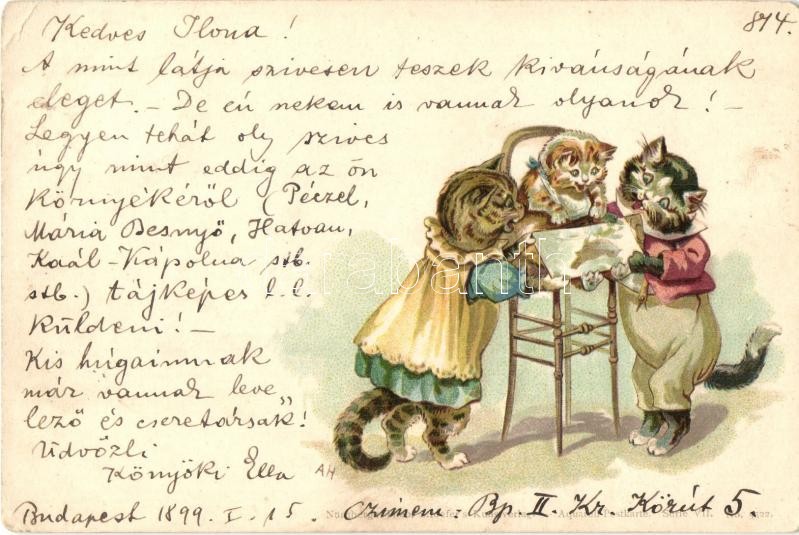 Kedves Ilona!
814.
A mint látja szivesen teszek kivánságának
eleget. – De én nekem is vannak olyanok! –
Legyen tehát oly szives
úgy mint eddig az ön
környékéről (Péczel,
Mária Besnyő, Hatvan,
Kaál-Kápolna stb.
stb.) tájképes l. l.
küldeni! –
Kis húgaimnak
már vannak leve„
lező és cseretársak!
Üdvözli
Könyöki Ella
AH
Budapest 1899. I. 15. Czimem: Bp. II. Kr. Körút 5.
Postkarte. Serie VII.
darabanth